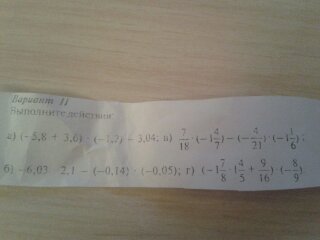 Вариант 11
Выполните действия:
а) (-5,8 + 3,6) · (-1,2) - 3,04; в) 7/18 · (-1 4/7) - (-4/21) · (-1 1/6);
б) -6,03 2,1 - (-0,14) · (-0,05); г) (-1 7/8 · 1 4/5 + 9/16) (-8/9)